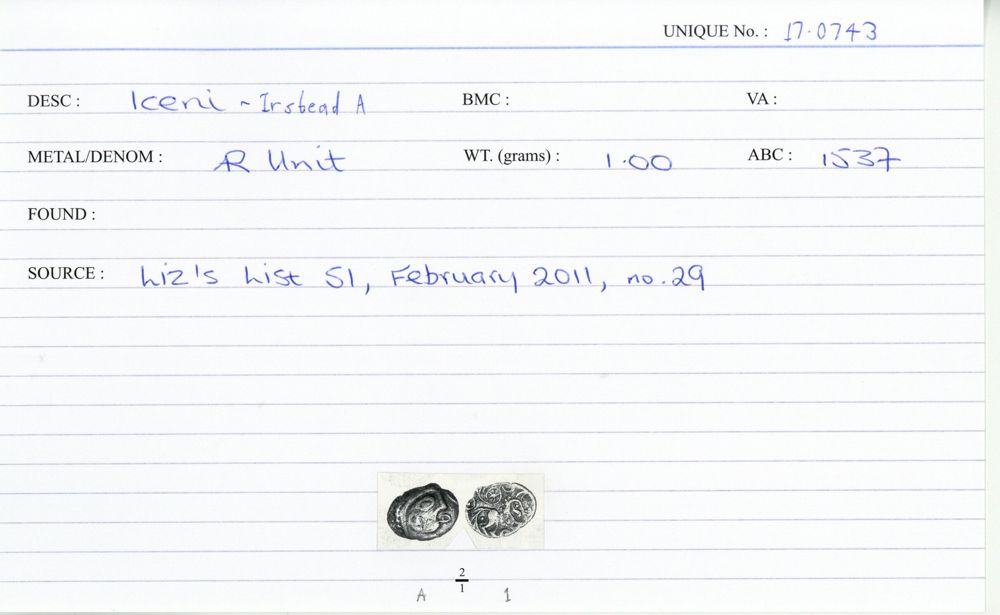 UNIQUE No. : 17.0743
DESC : Iceni ~ Irstead A BMC : VA :
METAL/DENOM : AR Unit WT. (grams) : 1.00 ABC : 1537
FOUND :
SOURCE : Liz's List 51, February 2011, no.29
2
A 1 1